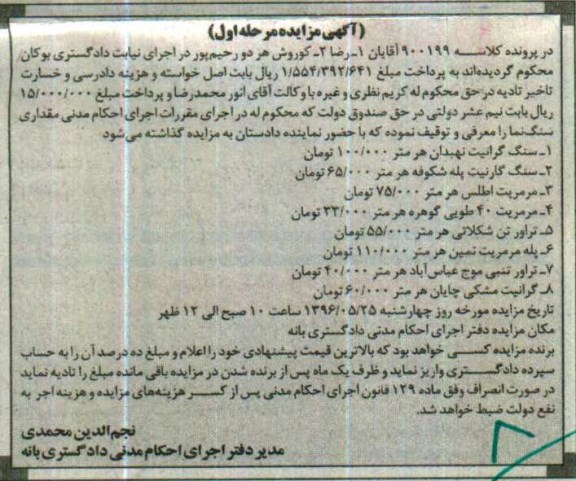 (آگهی مزایده مرحله اول)
در پرونده کلاسه ۹۰۰۱۹۹ آقایان ۱ـ رضا ۲ـ کوروش هر دو رحیم‌پور در اجرای نیابت دادگستری بوکان
محکوم گردیده‌اند به پرداخت مبلغ ۱/۵۵۴/۳۹۲/۶۴۱ ریال بابت اصل خواسته و هزینه دادرسی و خسارت
تاخیر تادیه در حق محکوم له کریم نظری و غیره با وکالت آقای انور محمدرضا و پرداخت مبلغ ۱۵/۰۰۰/۰۰۰
ریال بابت نیم عشر دولتی در حق صندوق دولت که محکوم له در اجرای مقررات اجرای احکام مدنی مقداری
سنگ‌نما را معرفی و توقیف نموده که با حضور نماینده دادستان به مزایده گذاشته می‌شود
۱ـ سنگ گرانیت نهبدان هر متر ۱۰۰/۰۰۰ تومان
۲ـ سنگ گارنیت پله شکوفه هر متر ۶۵/۰۰۰ تومان
۳ـ مرمریت اطلس هر متر ۷۵/۰۰۰ تومان
۴ـ مرمریت ۴۰ طولی گوهره هر متر ۳۳/۰۰۰ تومان
۵ـ تراور تن شکلاتی هر متر ۵۵/۰۰۰ تومان
۶ـ پله مرمریت ثمین هر متر ۱۱۰/۰۰۰ تومان
۷ـ تراور تنبی موج عباس‌آباد هر متر ۴۰/۰۰۰ تومان
۸ـ گرانیت مشکی چایان هر متر ۶۰/۰۰۰ تومان
تاریخ مزایده مورخه روز چهارشنبه ۱۳۹۶/۰۵/۲۵ ساعت ۱۰ صبح الی ۱۲ ظهر
مکان مزایده دفتر اجرای احکام مدنی دادگستری بانه
برنده مزایده کسی خواهد بود که بالاترین قیمت پیشنهادی خود را اعلام و مبلغ ده درصد آن را به حساب
سپرده دادگستری واریز نماید و ظرف یک ماه پس از برنده شدن در مزایده باقی مانده مبلغ را تادیه نماید
در صورت انصراف وفق ماده ۱۲۹ قانون اجرای احکام مدنی پس از کسر هزینه‌های مزایده و هزینه اجر به
نفع دولت ضبط خواهد شد.
نجم‌الدین محمدی
مدیر دفتر اجرای احکام مدنی دادگستری بانه